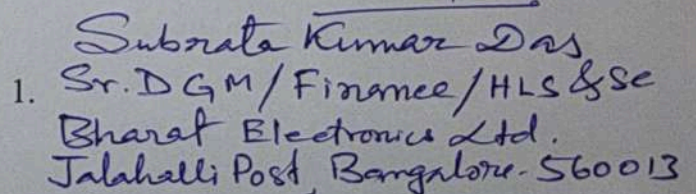 Subrata Kumar Das
1. Sr. DGM/Finance/HLS&Se
Bharat Electronics Ltd.
Jalahalli Post, Bangalore-560013